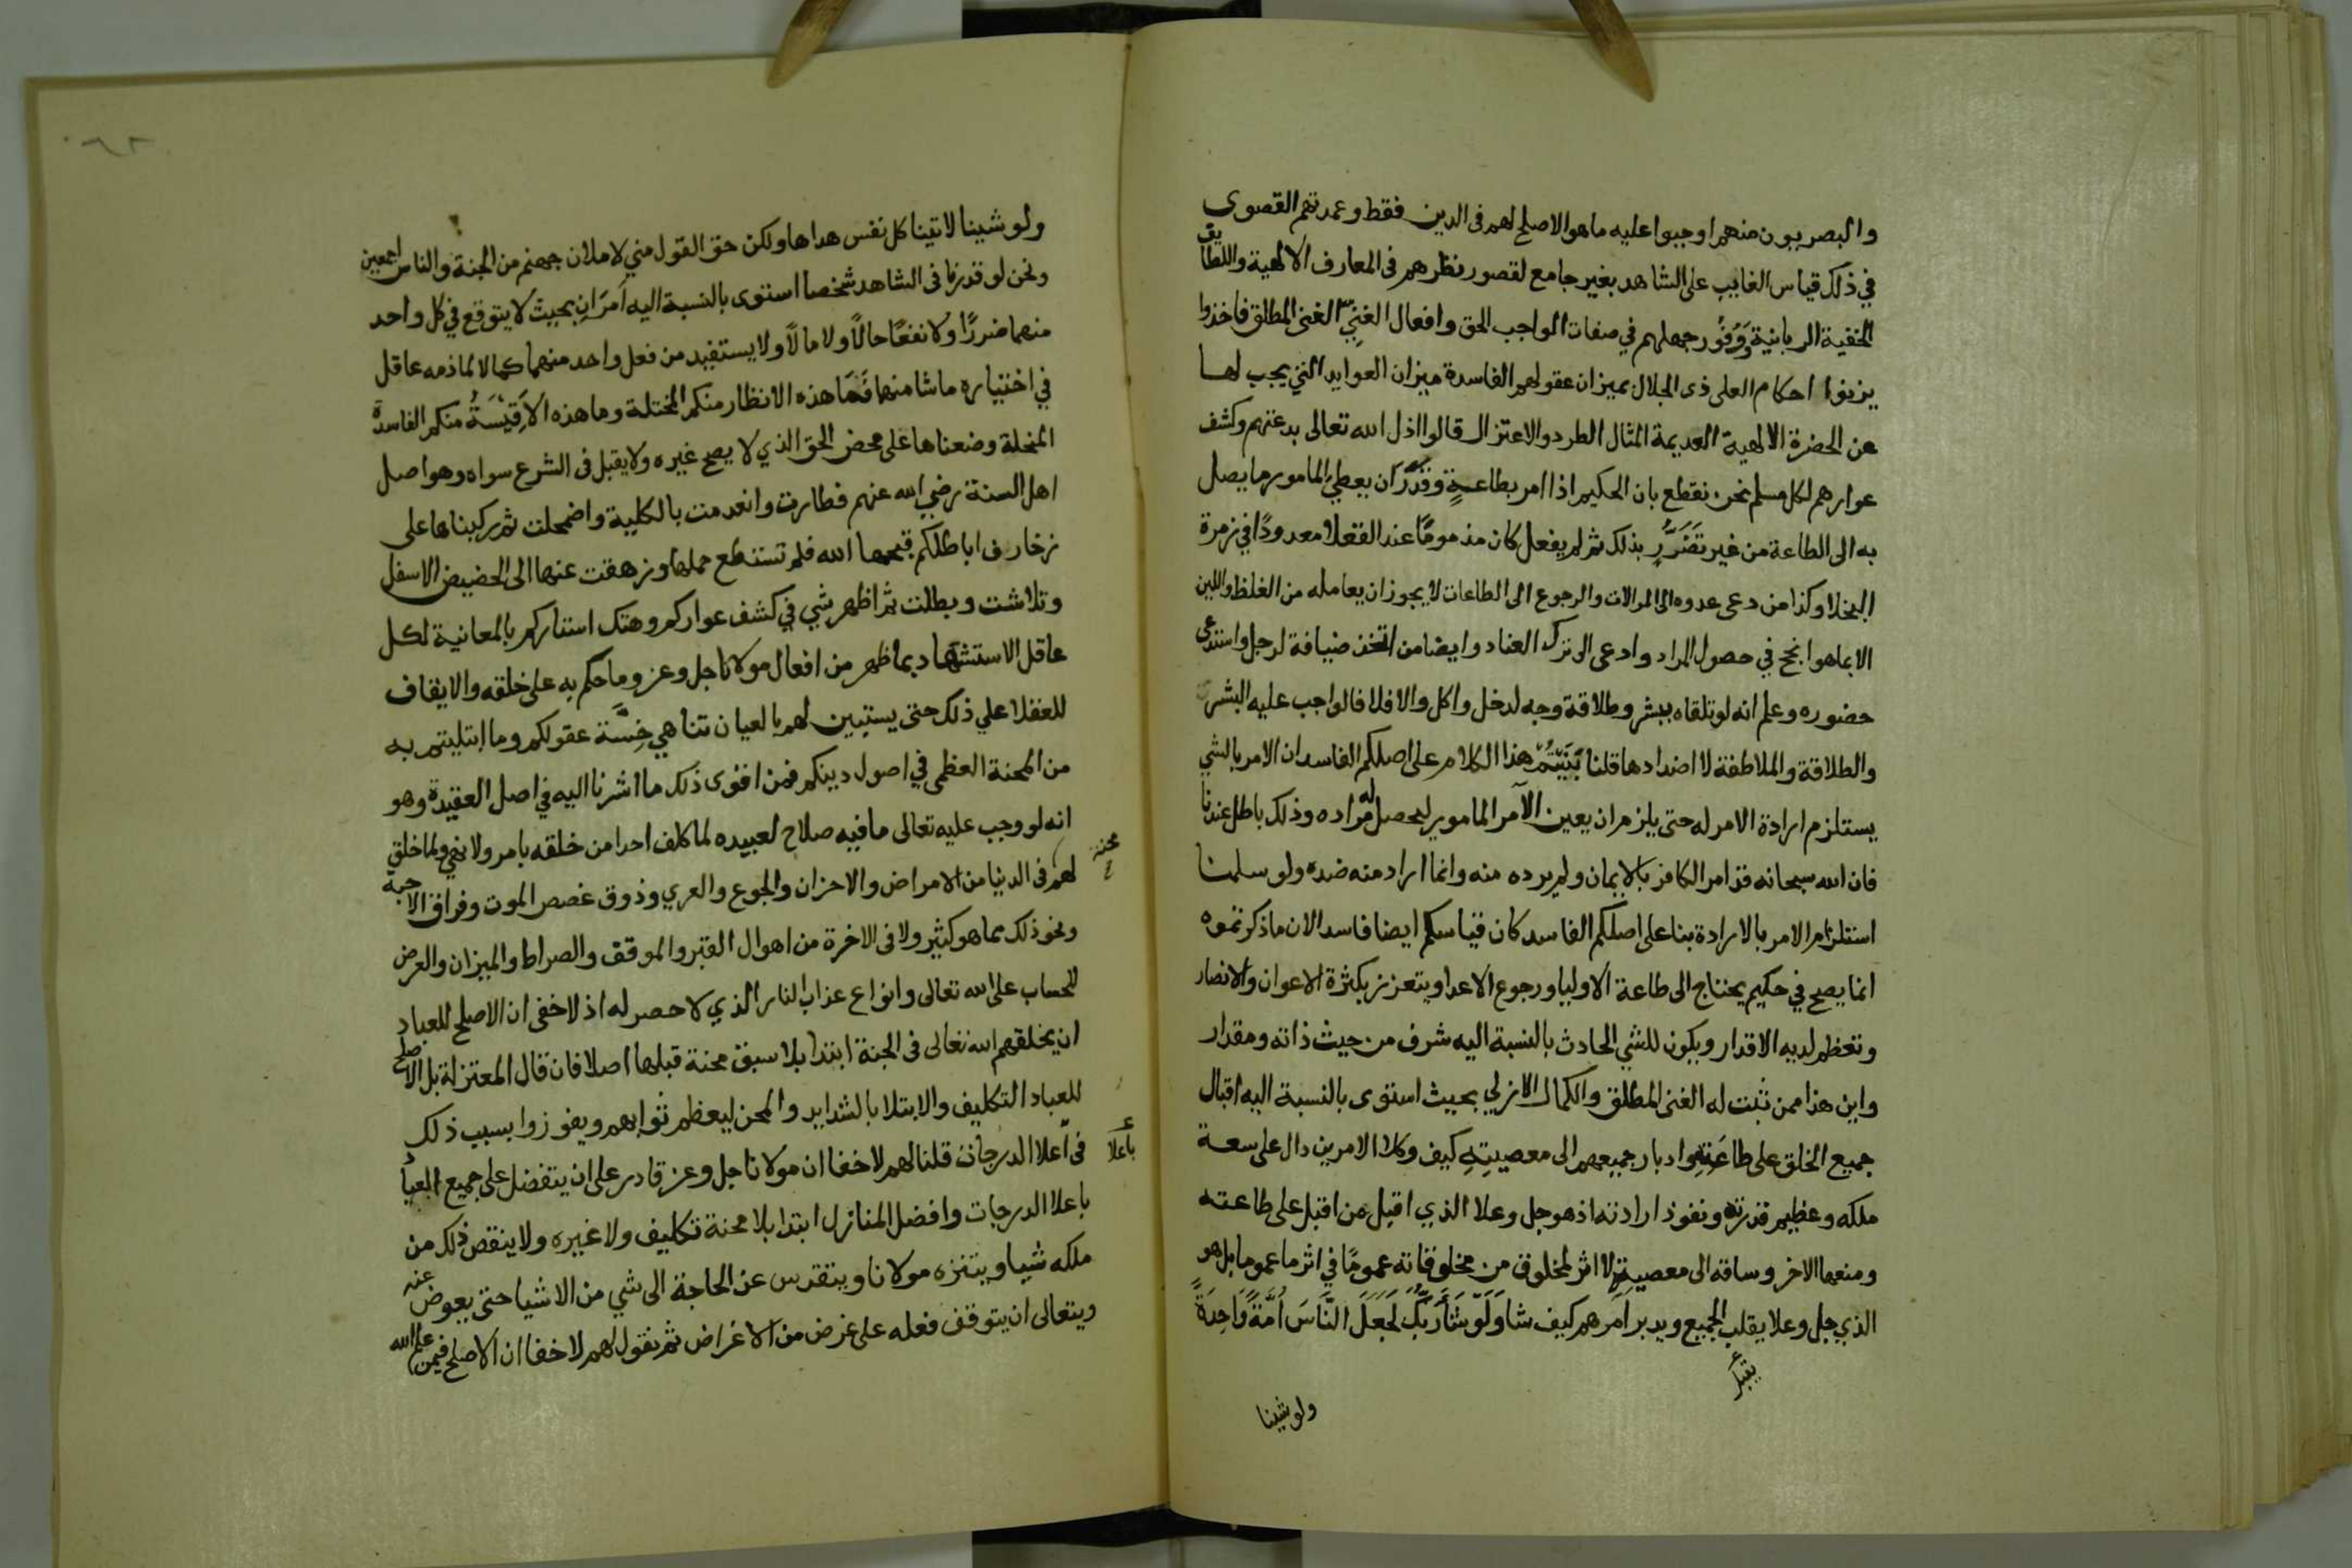 والبصريون منهم اوجبوا عليه ما هو الاصلح لهم فى الدين فقط وعمدتهم القصوى
في ذلك قياس الغايب على الشاهد بغير جامع لقصور نظرهم فى المعارف الالهية واللطايف
الخفية الربانية ووفور جهلهم في صفات الواجب الحق وافعال الغنيّ الغنى المطلق فاخذوا
يزنوا احكام العلى ذى الجلال بميزان عقولهم الفاسدة ميزان العوايد التي يجب لها
عن الحضرة الالهية العديمة المثال الطرد والاعتزال قالوا اذل الله تعالى بدعتهم وكشف
عوارهم لكل مسلم نحن نقطع بان الحكيم اذا امر بطاعةٍ وقَدَرَ ان يعطي المامور ما يصل
به الى الطاعة من غير تَضَرُّرٍ بذلك ثم لم يفعل كان مذمومًا عند العقلا معدودًا في زمرة
البخلا وكذا من دعى عدوه الى الموالات والرجوع الى الطاعات لا يجوز ان يعامله من الغلظ واللين
الا بما هو انجح في حصول المراد وادعى الى ترك العناد وايضا من اتخذ ضيافة لرجل واستدعى
حضوره وعلم انه لو تلقاه ببشر وطلاقة وجه لدخل واكل والا فلا فالواجب عليه البشر
والطلاقة والملاطفة لا اضدادها قلنا بَنَيْتُمْ هذا الكلام على اصلكم الفاسد ان الامر بالشي
يستلزم ارادة الامر له حتى يلزم ان يعين الآمر المامور ليحصل له مراده وذلك باطل عندنا
فان الله سبحانه قد امر الكافر بالايمان ولم يرده منه وانما اراد منه ضده ولو سلمنا
استلزام الامر بالارادة بنا على اصلكم الفاسد كان قياسكم ايضا فاسد الان ما ذكرتموه
انما يصح في حكيم يحتاج الى طاعة الاوليا ورجوع الاعدا ويتعزز بكثرة الاعوان والانصار
وتعظم لديه الاقدار ويكون للشي الحادث بالنسبة اليه شرف من حيث ذاته ومقدار
واين هذا ممن ثبت له الغنى المطلق والكمال الازلي بحيث استوى بالنسبة اليه اقبال
جميع الخلق على طاعَتِهِ وادبار جميعهم الى معصيتِهِ كيف وكلا الامرين دال على سعة
ملكه وعظيم قدرته ونفوذ ارادته اذ هو جل وعلا الذي اقبل من اقبل على طاعته
ومنعها الاخر وساقه الى معصيته لا اثر لمخلوق من مخلوقاته عمومًا في اثر ما عموما بل هو
الذي جل وعلا يقلب الجميع ويدبر امرهم كيف شا وَلَوْ شَآ رَبُّكَ لَجَعَلَ النَّاسَ أُمَّةً وَاحِدَةً
ولو شينا
ولو شينا لاتينا كل نفس هداها ولكن حق القول مني لاملان جهنم من الجنة والناس اجمعين
ونحن لو قدرنا فى الشاهد شخصا استوى بالنسبة اليه اَمرَانِ بحيث لا يتوقع في كل واحد
منهما ضررًا ولا نفعًا حالًا ولا مالًا ولا يستفيد من فعل واحد منهما كمالا لما ذمه عاقل
في اختياره ما شا منها فَمَا هذه الانظار منكم المختلة وما هذه الاَقِيْسَةُ منكم الفاسدة
المنحلة وضعناها على محض الحق الذي لا يصح غيره ولا يقبل فى الشرع سواه وهو اصل
اهل السنة رضي الله عنهم فطارت وانعدمت بالكلية واضمحلت ثم ركبناها على
زخارف اباطلكم قبحها الله فلم تستطع حملها وزهقت عنها الى الحضيض الاسفل
وتلاشت وبطلت ثم اظهر شي في كشف عواركم وهتك استاركم بالمعانية لكل
عاقل الاستشهاد بما ظهر من افعال مولانا جل وعز وما حكم به على خلقه والايقاف
للعقلا علي ذلك حتى يستبين لهم بالعيان تناهي خِسَّة عقولكم وما ابتليتم به
من المحنة العظمى في اصول دينكم فمن اقوى ذلك ما اشرنا اليه في اصل العقيدة وهو
انه لو وجب عليه تعالى ما فيه صلاح لعبيده لما كلف احدا من خلقه بامر ولا نهي ولما خلق
محنة
لهم فى الدنيا من الامراض والاحزان والجوع والعري وذوق غصص الموت وفراق الاحبة
ونحو ذلك مما هو كثير ولا فى الاخرة من اهوال القبر والموقف والصراط والميزان والعرض
للحساب على الله تعالى وانواع عذاب النار الذي لا حصر له اذ لا خفى ان الاصلح للعباد
ان يخلقهم الله تعالى فى الجنة ابتدا بلا سبق محنة قبلها اصلا فان قال المعتزلة بل الاصلح
للعباد التكليف والابتلا بالشدايد والمحن ليعظم ثوابهم ويفوزوا بسبب ذلك
باعلا
فى اعلا الدرجات قلنا لهم لا خفا ان مولانا جل وعز قادر على ان يتفضل على جميع العباد
باعلا الدرجات وافضل المنازل ابتدا بلا محنة تكليف ولا غيره ولا ينقص ذلك من
ملكه شيا ويتنزه مولانا ويتقدس عن الحاجة الى شي من الاشيا حتى يعوض عنه
ويتعالى ان يتوقف فعله على غرض من الاغراض ثم نقول لهم لا خفا ان الاصلح فيمن علم الله